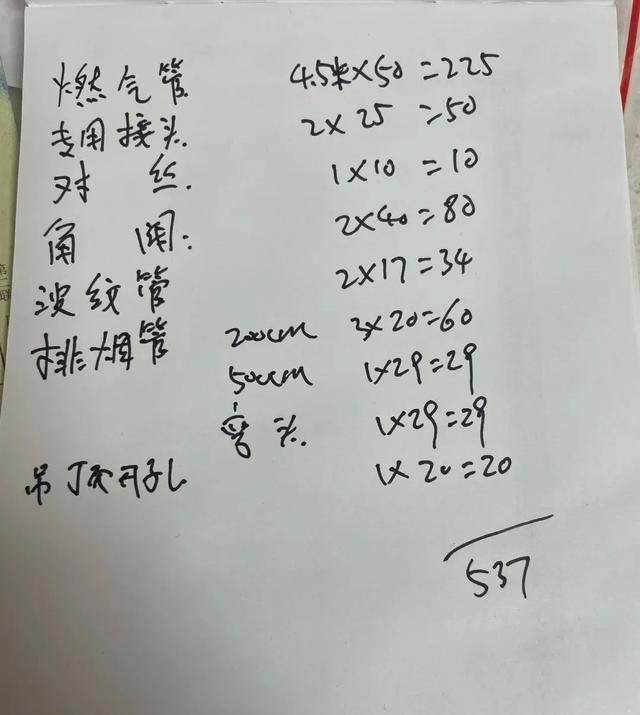 燃气管 4.5米×50=225
专用接头 2×25=50
对丝 1×10=10
角阀: 2×40=80
波纹管 2×17=34
排烟管 200cm 3×20=60
50cm 1×29=29
弯头 1×29=29
吊顶开孔 1×20=20
537